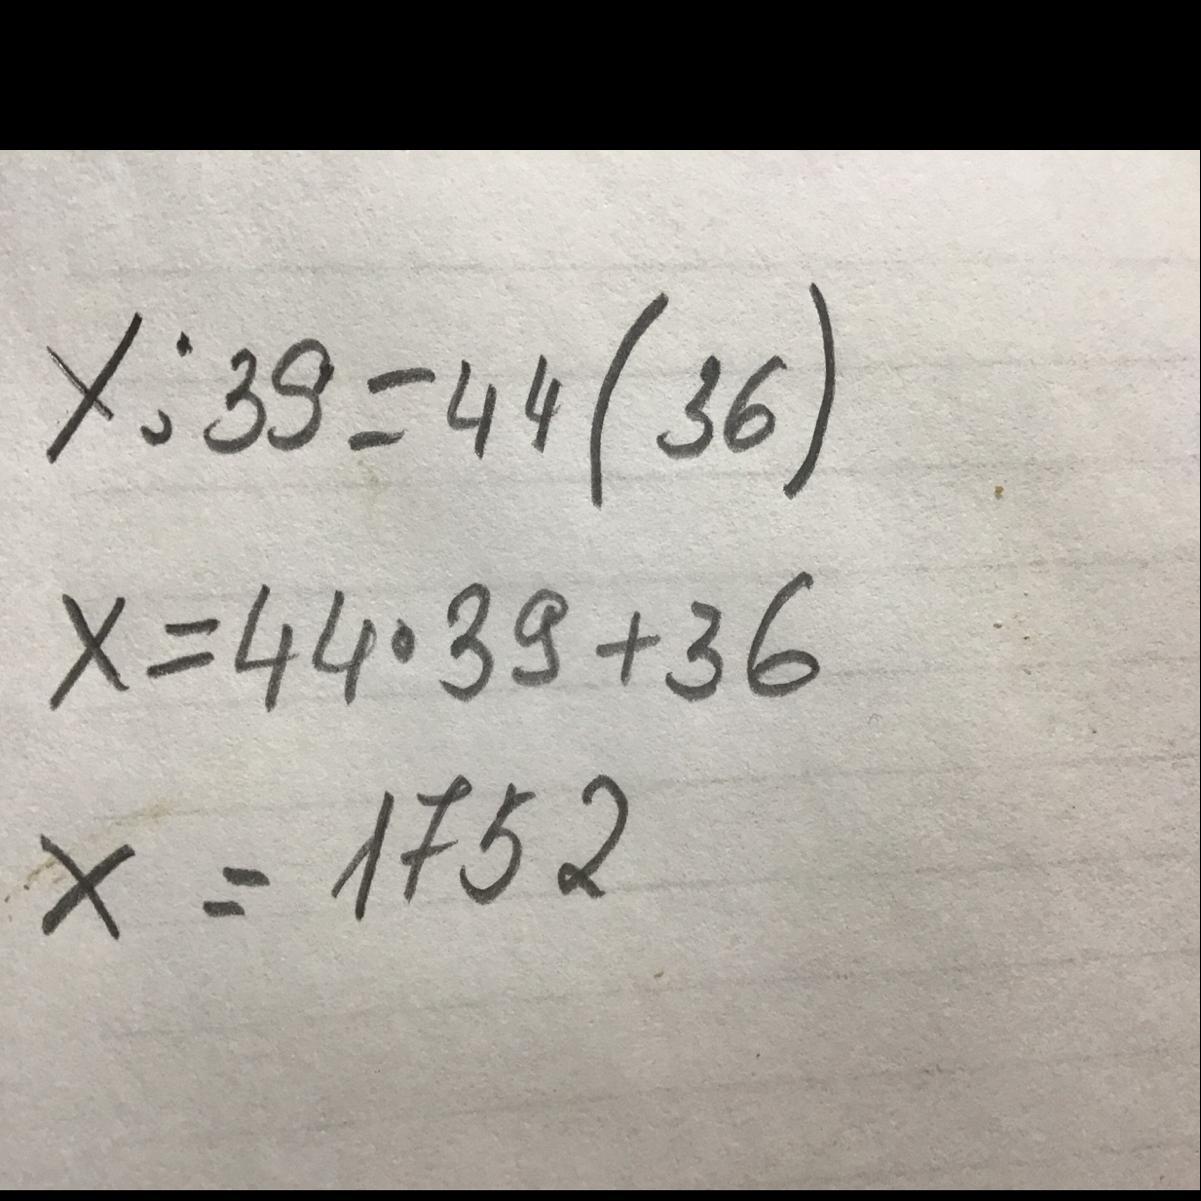 x:39=44(36)
x=44•39+36
x = 1752